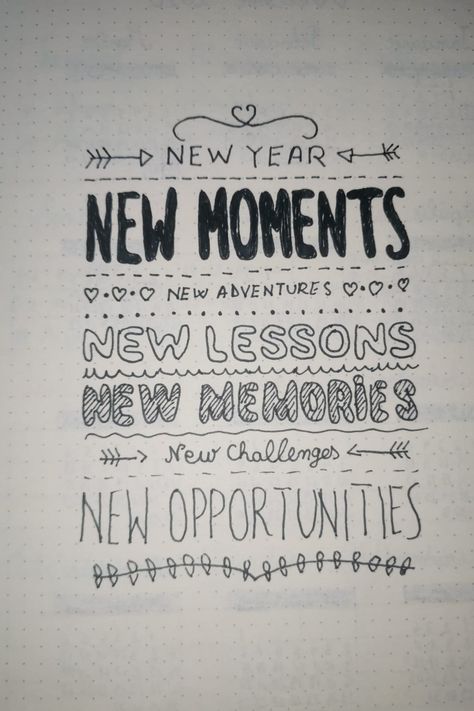 NEW YEAR
NEW MOMENTS
NEW ADVENTURES
NEW LESSONS
NEW MEMORiES
New Challenges
NEW OPPORTUNITIES